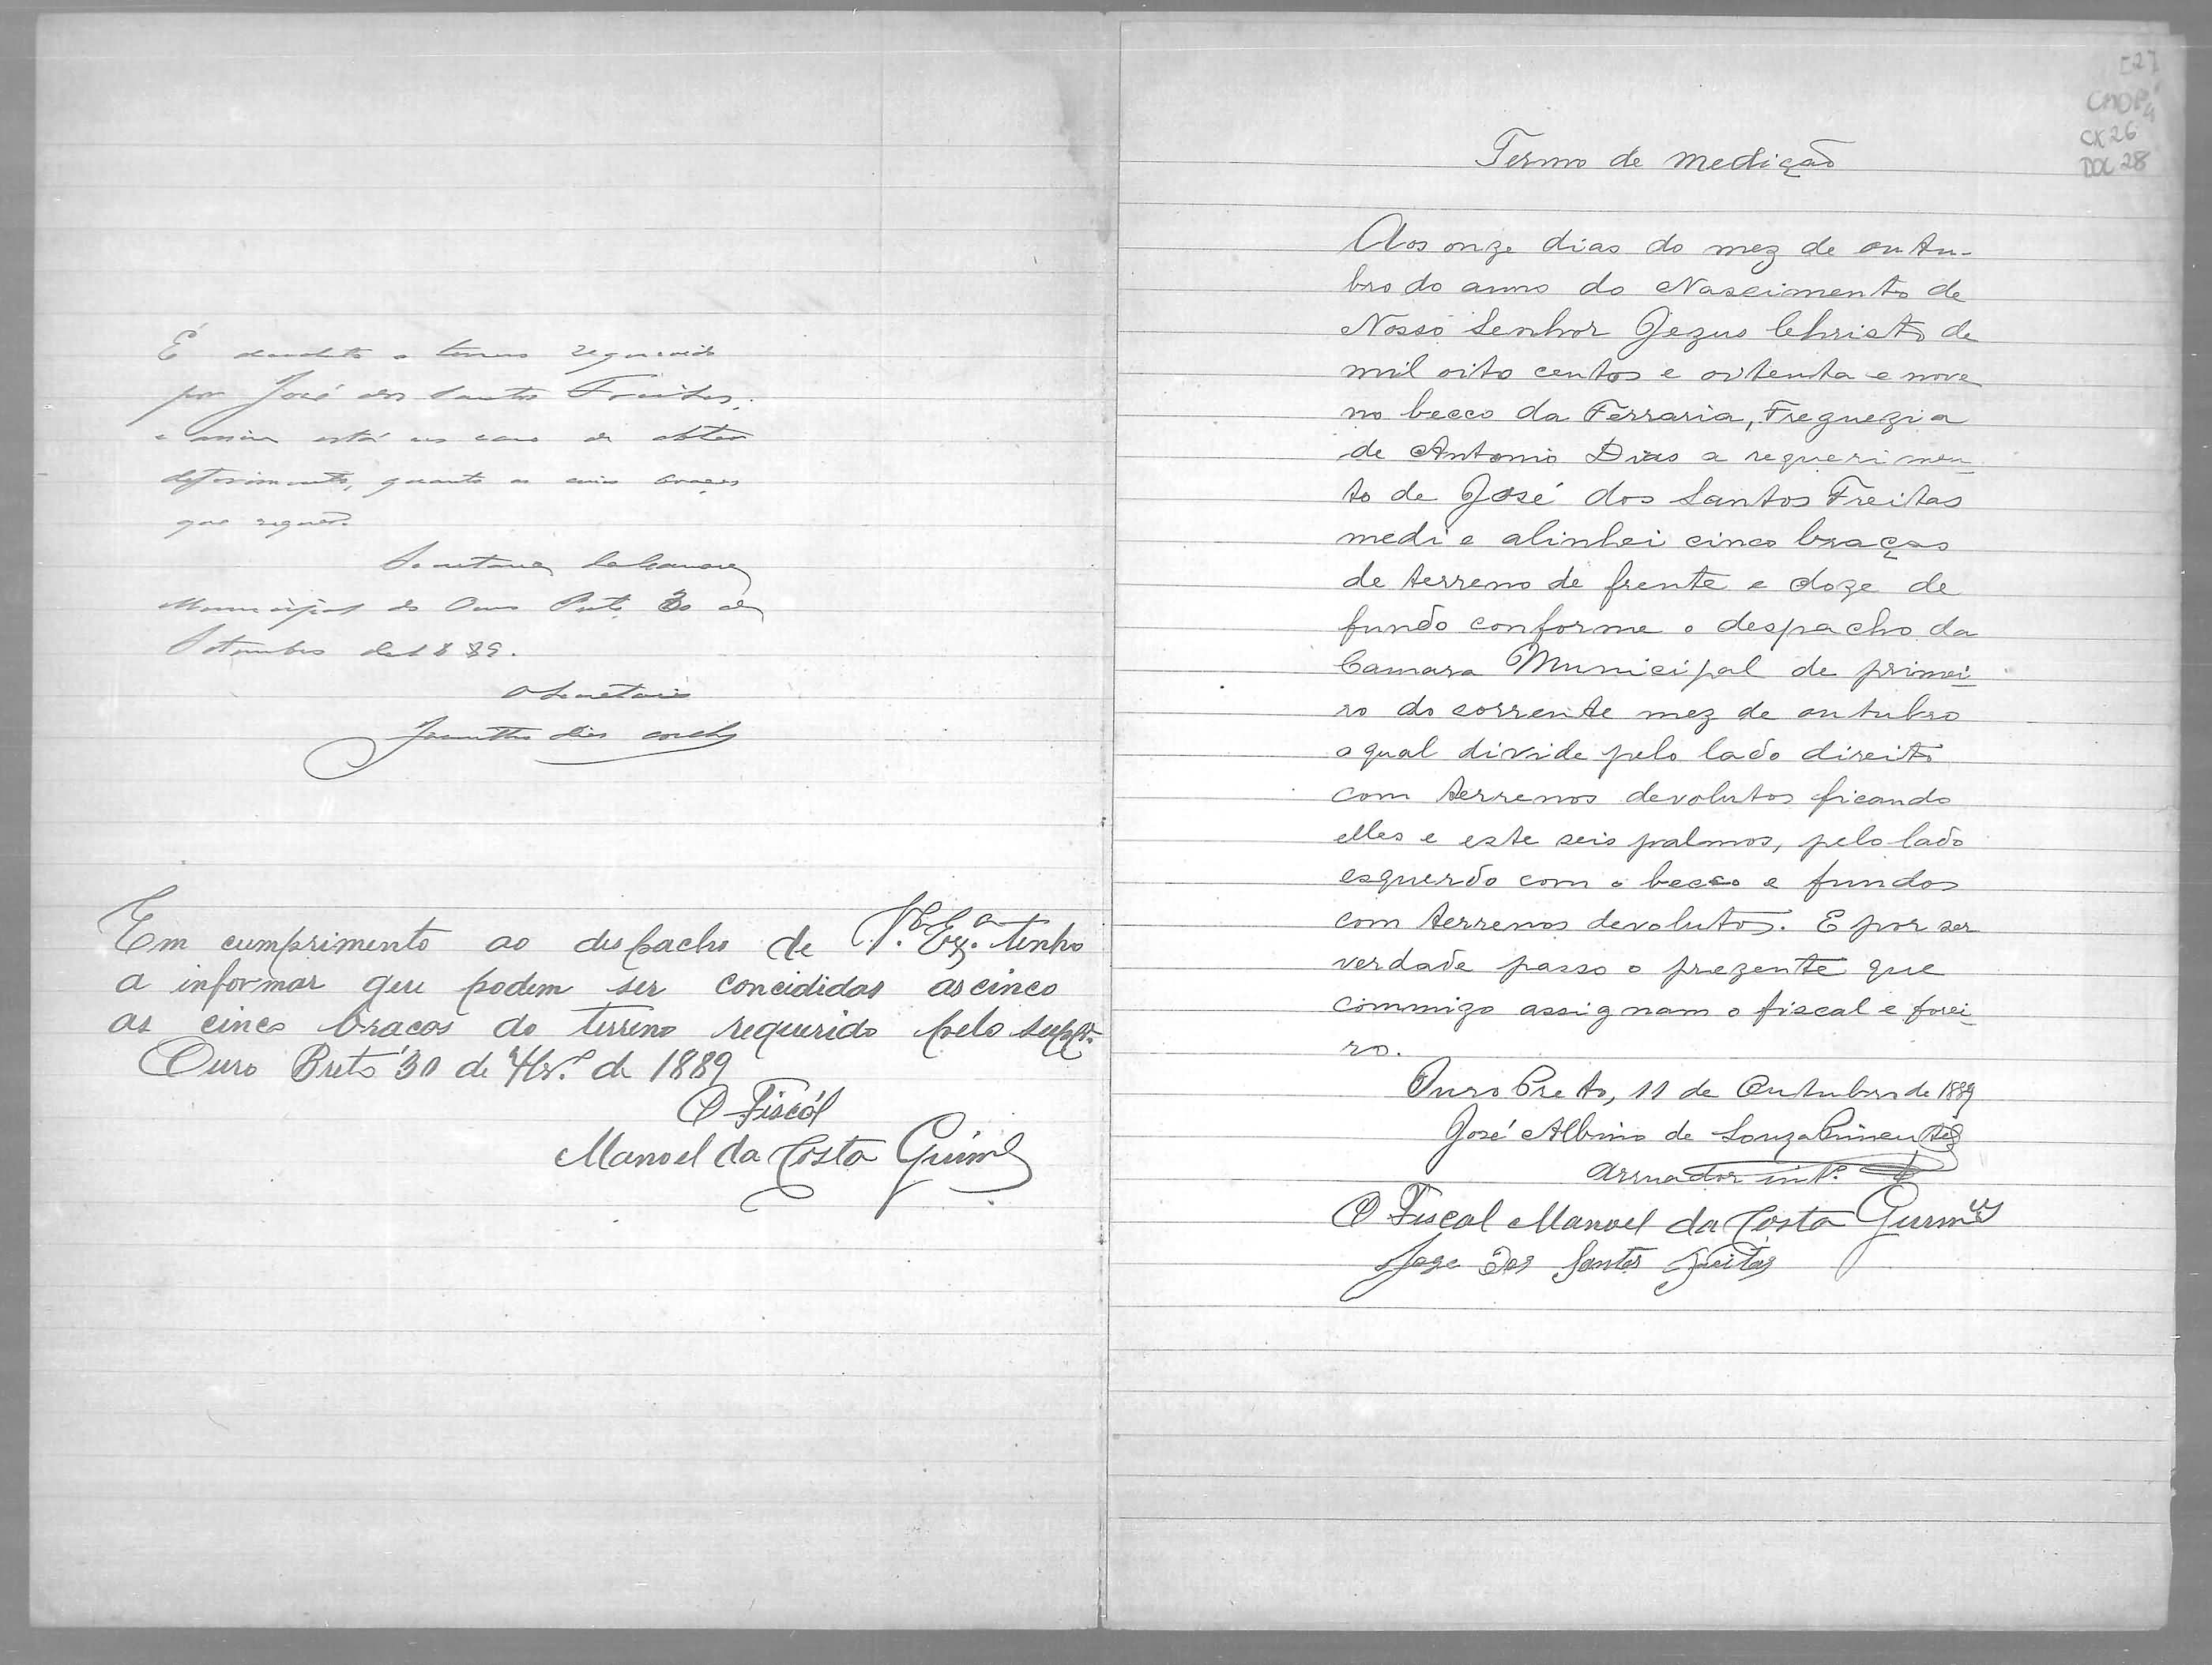 É devoluto o terreno requerido
por José dos Santos Freitas,
e assim está no caso de obter
deferimento, quanto as cinco braças
que requer.
Secretaria da Camara
Municipal do Ouro Preto 30 de
Setembro de 1889.
O Secretario
Em cumprimento ao despacho de V.ª Ex.ª tenho
a informar que podem ser concididas as cinco
as cinco bracos do terreno requerido pelo supp.te
Ouro Preto 30 de 7br.º de 1889
O Fiscál
Manoel da Costa Guim.es
[27
CMOP
CX 26
DOC 28
Termo de medição
Aos onze dias do mez de outu-
bro do anno do Nascimento de
Nosso Senhor Jezus Christo de
mil oito centos e oitenta e nove
no becco da Ferraria, Freguezia
de Antonio Dias a requerimen-
to de José dos Santos Freitas
medi e alinhei cinco braças
de terreno de frente e doze de
fundo conforme o despacho da
Camara Municipal de primei-
ro do corrente mez de outubro
o qual divide pelo lado direito
com terrenos devolutos ficando
elles e este seis palmos, pelo lado
esquerdo com o becco e fundos
com terrenos devolutos. E por ser
verdade passo o prezente que
commigo assignam o fiscal e forei-
ro.
Ouro Preto, 11 de Outubro de 1889
José Albino de Souza Pimentel
Arruador int.º
O Fiscal Manoel da Costa Guim.es
Jose dos Santos Freitas